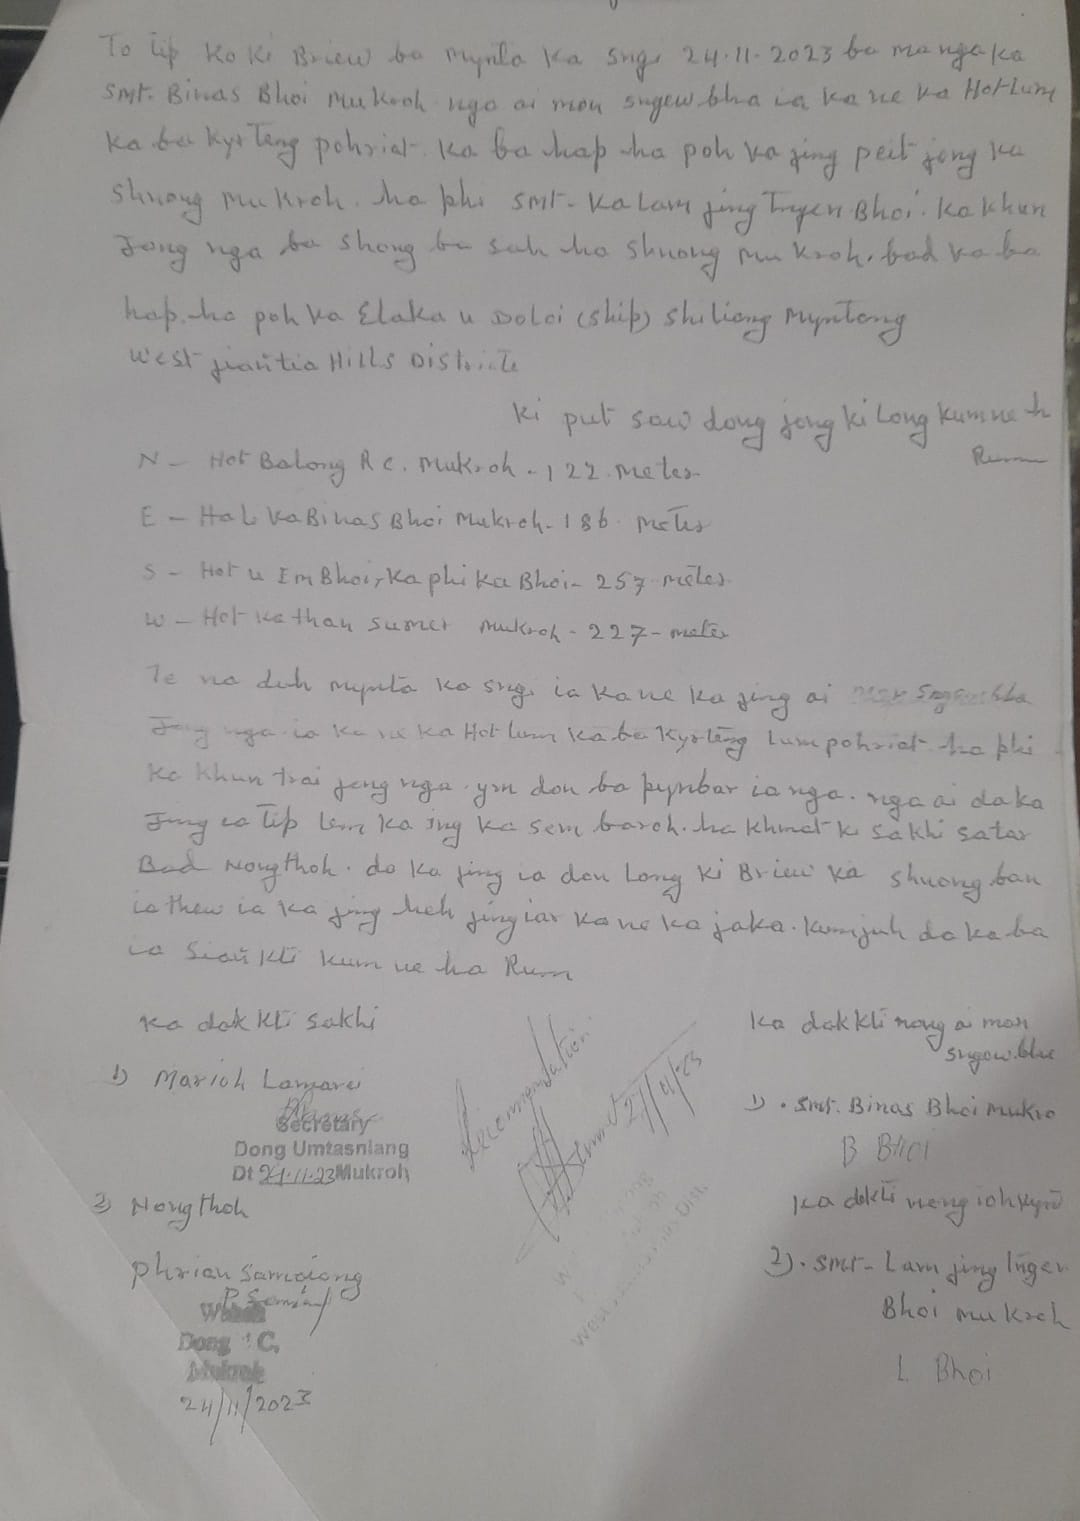 To tip ko ki Briew ba mynta ka sngi 24.11.2023 ba ma nga ka
Smt. Binas Bhoi Mukroh nga ai mon sngewbha ia ka ne ka Hot Lum
Ka ba kyrteng pohriat. Ka ba hap ha poh ka jing peit jong ka
Shnong Mukroh. ha phi Smt- Ka Lam jing Bhoi. Ka khun
Jong nga ba shong ba sah ha shnong Mukroh. bad ka ba
hap. ha poh ka Elaka u Doloi (ship) Shiliang Myntang
West Jiantia Hills District
Ki put saw dong jong ki Long kumne h
Rum
N - Hot Balong R C. Mukroh - 122 Meter
E - Hali Ka Binas Bhoi Mukroh - 186 Meter
S - Hot u Em Bhoi, Ka phi Ka Bhoi - 257 meter
W - Hot ka than sumer Mukroh - 227 - meter
Te na duh mynta ka sngi ia ka ne ka jing ai mon Sngewbha
Jong nga ia ka ne ka Hot lum ka ba kyrteng Lum pohriat ha phi
Ka khun trai jong nga. ym don ba pynbar ia nga. nga ai da ka
Jing ia tip lem ka ing ka sem baroh. ha khmat ki sakhi satar
Bad Nongthoh. da ka jing ia don Lang ki Briew ka shnong ban
ia thew ia ka jing heh jing iar ka ne ka jaka. kumjuh da ka ba
ia Siañ kti kum ne ha Rum
Ka dak kti sakhi
Ka dak kti nong ai mon
sngew.bha
Recomendation
27/11/23
1) Marioh Lamare
Secretary
Dong Umtasniang
Dt 24.11.23 Mukroh
1). Smt. Binas Bhoi Mukro
B Bhoi
2) Nongthoh
Ka dakti nong ioh
Phrian Samdiang
Dong C,
Mukroh
24/11/2023
2). Smt- Lam jing
Bhoi Mukroh
L Bhoi